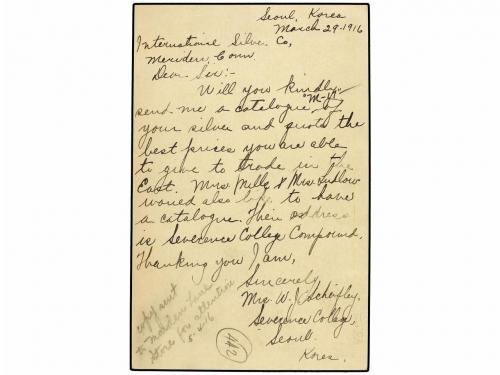 Seoul, Korea
March 29-1916
International Silver Co,
Meriden, Conn.
Dear Sir:-
Will you kindly
send me a catalogue "M-J" of
your silver and quote the
best prices you are able
to give to trade in the
East. Mrs. Mills & Mrs. Ludlow
would also like to have
a catalogue. Their address
is Severence College Compound.
Thanking you I am,
Sincerely
Mrs. W. J. Scheifley.
Severence College,
Seoul.
Korea.
copy sent
to
Store for attention
5-4-16
442